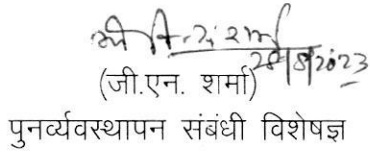 28/8/2023
(जी.एन. शर्मा)
पुनर्व्यवस्थापन संबंधी विशेषज्ञ